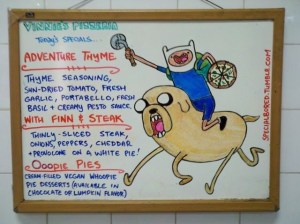 VINNIE'S PIZZERIA
Today's SPECIALS...
ADVENTURE THYME
THYME SEASONING,
SUN-DRIED TOMATO, FRESH
GARLIC, PORTABELLO, FRESH
BASIL + CREAMY PESTO SAUCE
WITH FINN & STEAK
THINLY-SLICED STEAK,
ONIONS, PEPPERS, CHEDDAR
+ PROVOLONE ON A WHITE PIE!
OOOPIE PIES
CREAM-FILLED VEGAN WHOOPIE
PIE DESSERTS (AVAILABLE IN
CHOCOLATE OR LUMPKIN FLAVOR)
SPECIALBORED.TUMBLR.COM